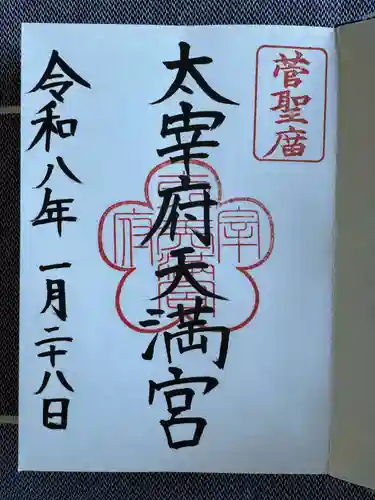 菅聖庿
太宰府天満宮
令和八年一月二十八日